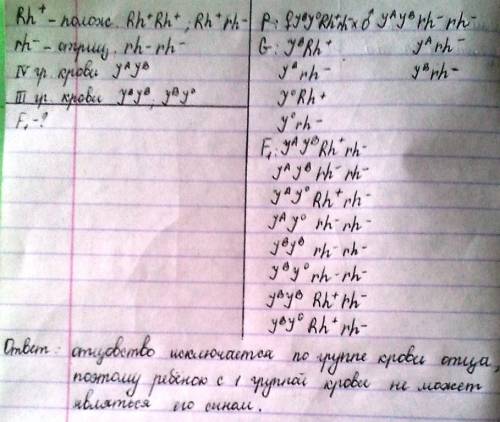 Rh⁺ - полож. Rh⁺Rh⁺; Rh⁺rh⁻
rh⁻ - отриц. rh⁻rh⁻
IV гр. крови YᴬYᴮ
III гр. крови YᴮYᴮ, YᴮY⁰
F₁ - ?
P: ♀ YᴮY⁰Rh⁺rh⁻ x ♂ YᴬYᴮ rh⁻ rh⁻
G: YᴮRh⁺ Yᴬrh⁻
Yᴮrh⁻ Yᴮrh⁻
Y⁰Rh⁺
Y⁰rh⁻
F₁: YᴬYᴮRh⁺rh⁻
YᴬYᴮ rh⁻ rh⁻
YᴬY⁰ Rh⁺rh⁻
YᴬY⁰ rh⁻ rh⁻
YᴮYᴮ rh⁻ rh⁻
YᴮY⁰ rh⁻ rh⁻
YᴮYᴮ Rh⁺rh⁻
YᴮY⁰ Rh⁺rh⁻
Ответ: отцовство исключается по группе крови отца,
поэтому ребёнок с 1 группой крови не может
являться его сыном.